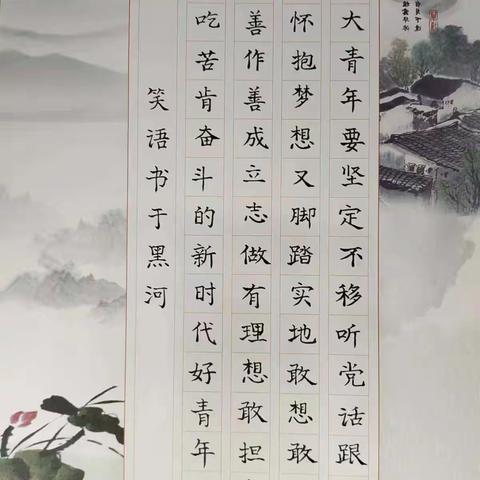 大青年要坚定不移听党话跟
怀抱梦想又脚踏实地敢想敢
善作善成立志做有理想敢担
吃苦肯奋斗的新时代好青年
笑语书于黑河